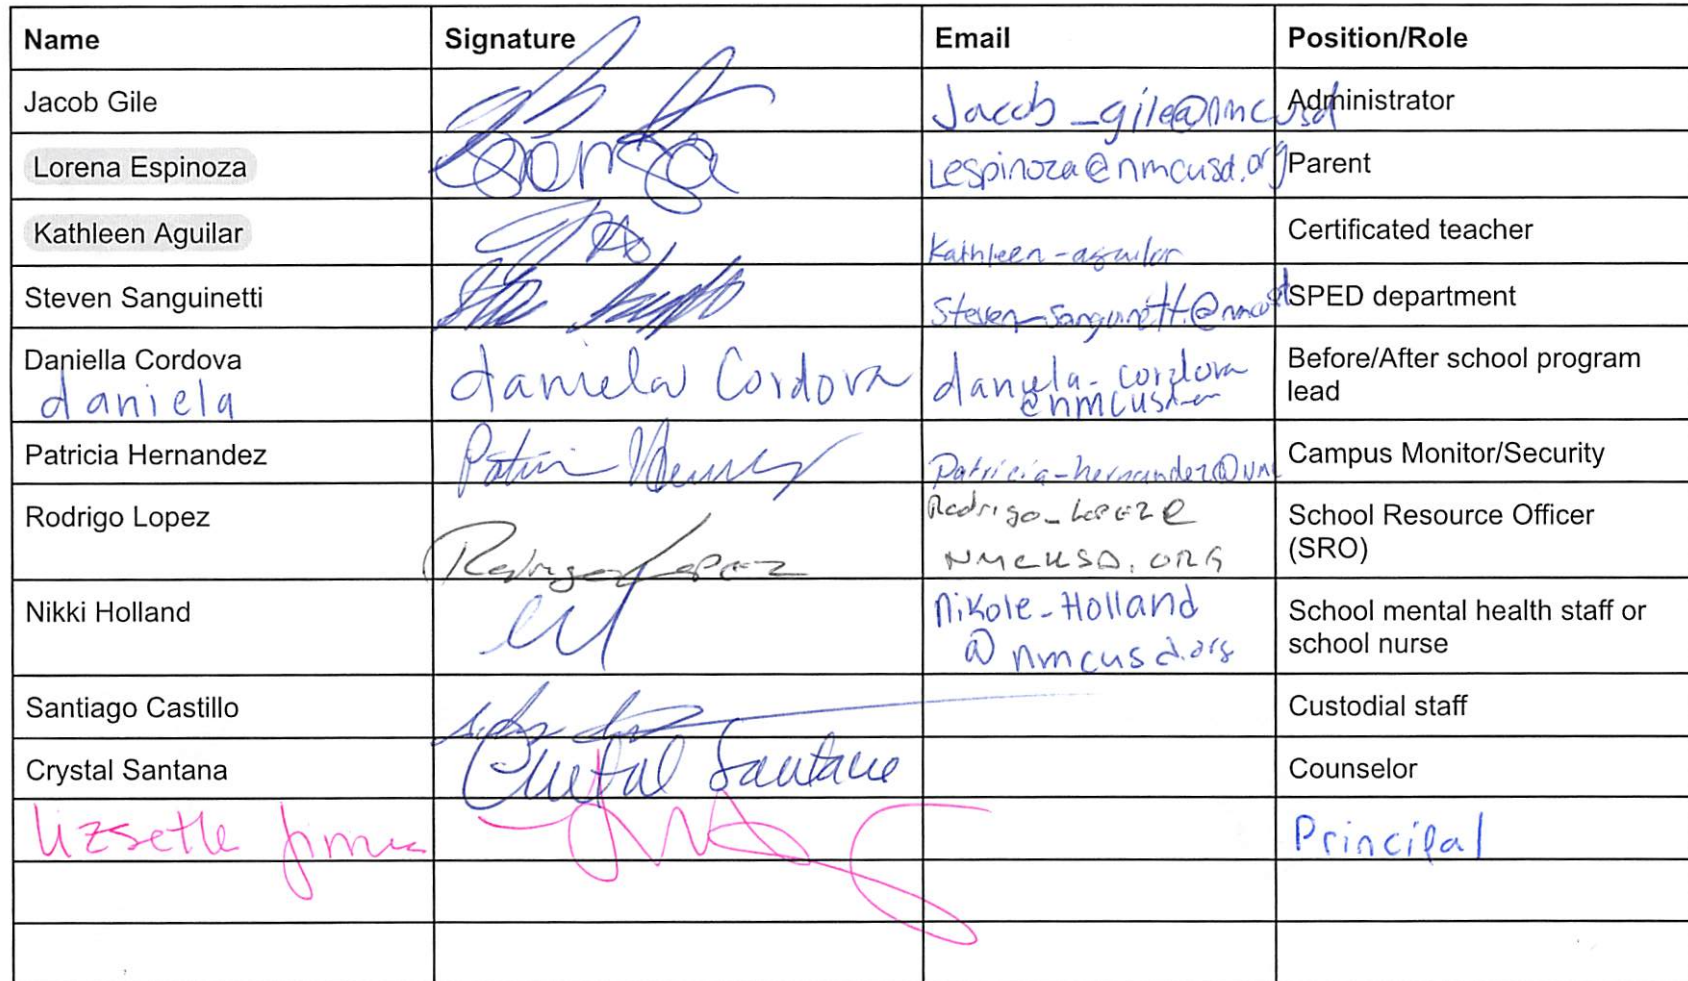 Name Signature Email Position/Role
Jacob Gile Jacob_gile@nmcusd Administrator
Lorena Espinoza Lespinoza@nmcusd.org Parent
Kathleen Aguilar Kathleen-aguilar Certificated teacher
Steven Sanguinetti SPED department
Daniella Cordova daniela Cordova daniela-cordova Before/After school program
daniela lead
Patricia Hernandez Patricia-hernandez@nmc Campus Monitor/Security
Rodrigo Lopez Rodrigo_Lopez@ School Resource Officer
Rodrigo Lopez NMCUSD.ORG (SRO)
Nikki Holland Nikole-Holland School mental health staff or
@nmcusd.org school nurse
Santiago Castillo Custodial staff
Crystal Santana Crystal Santana Counselor
lizsette Principal